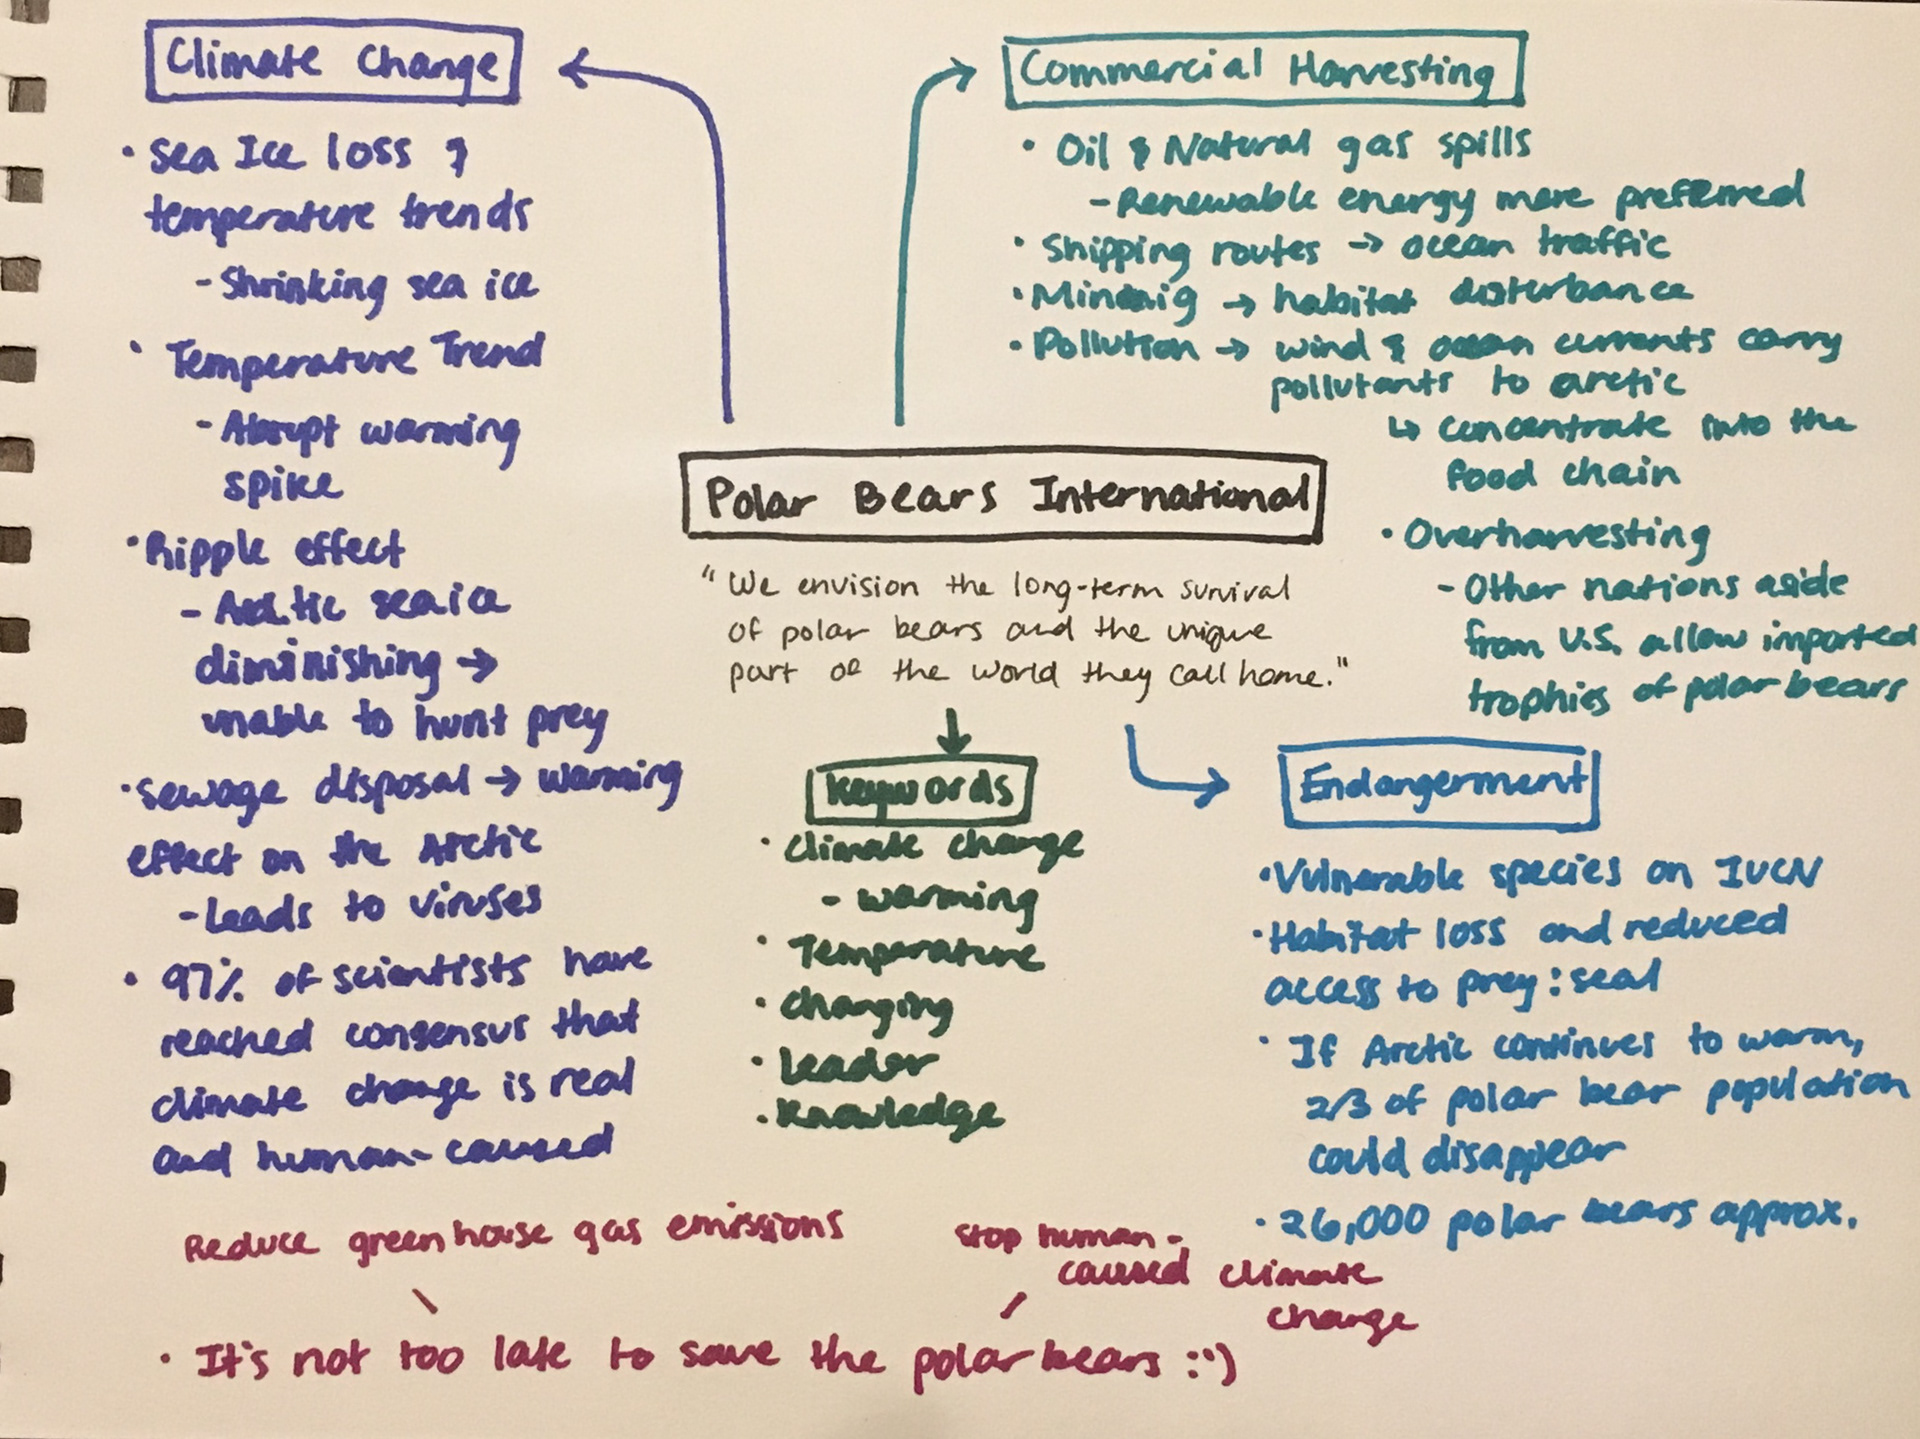 Climate Change
• Sea Ice loss &
temperature trends
- Shrinking sea ice
• Temperature Trend
- Abrupt warming
spike
• Ripple effect
- Arctic sea ice
diminishing →
unable to hunt prey
• Sewage disposal → warming
effect on the Arctic
- Leads to viruses
• 97% of scientists have
reached consensus that
climate change is real
and human-caused
Commercial Harvesting
• Oil & Natural gas spills
- Renewable energy more preferred
• Shipping routes → ocean traffic
• → habitat disturbance
• Pollution → wind & ocean currents carry
pollutants to arctic
↳ concentrate into the
food chain
• Overharvesting
- Other nations aside
from U.S. allow imported
trophies of polar bears
Polar Bears International
"We envision the long-term survival
of polar bears and the unique
part of the world they call home."
Keywords
• Climate change
- warming
• Temperature
• Changing
• Leader
• Knowledge
Endangerment
• Vulnerable species on IUCN
• Habitat loss and reduced
access to prey: seal
• If Arctic continues to warm,
2/3 of polar bear population
could disappear
• 26,000 polar bears approx.
Reduce greenhouse gas emissions
Stop human-
caused climate
change
• It's not too late to save the polar bears :')